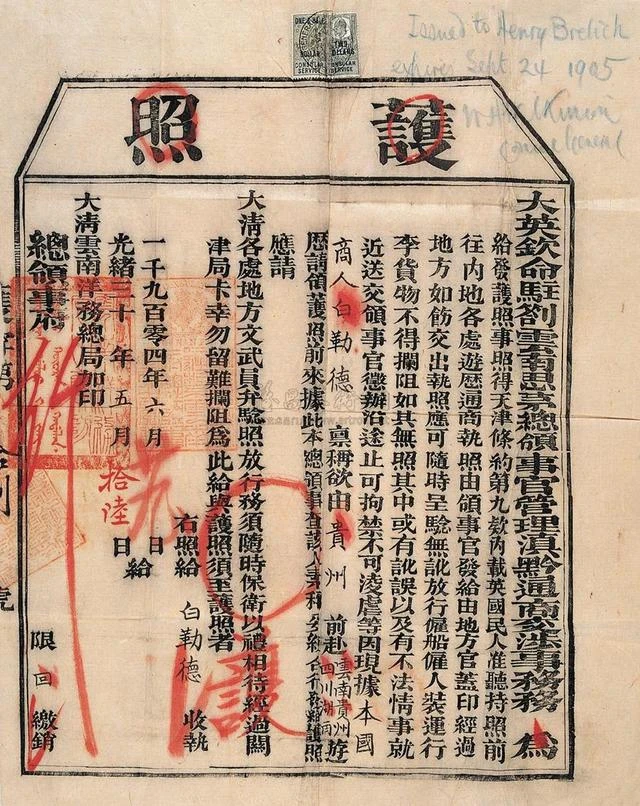 ONE DOLLAR
CONSULAR
SERVICE
TWO
DOLLARS
CONSULAR
SERVICE
Issued to Henry Brelich
expires Sept 24 1905
Consul General
護照
大英欽命駐劄雲南思茅總領事官管理滇黔通商交涉事務 為
給發護照事照得天津條約第九款內載英國民人准聽持照前
往內地各處遊歷通商執照由領事官發給由地方官蓋印經過
地方如飭交出執照應可隨時呈驗無訛放行僱船僱人裝運行
李貨物不得攔阻如其無照其中或有訛誤以及有不法情事就
近送交領事官懲辦沿途止可拘禁不可凌虐等因現據本國
商人白勒德 稟稱欲由 貴州 前赴 雲南貴州四川湖南 遊
歷請領護照前來據此本總領事查該人素稱 護照
應請
大清各處地方文武員弁驗照放行務須隨時保衛以禮相待經過關
津局卡幸勿留難攔阻為此給與護照須至護照者
右照給 白勒德 收執
一千九百零四年六月 日給
光緒三十年五月 拾陸 日
大清雲南洋務總局加印
總領事府
限 回繳銷
號